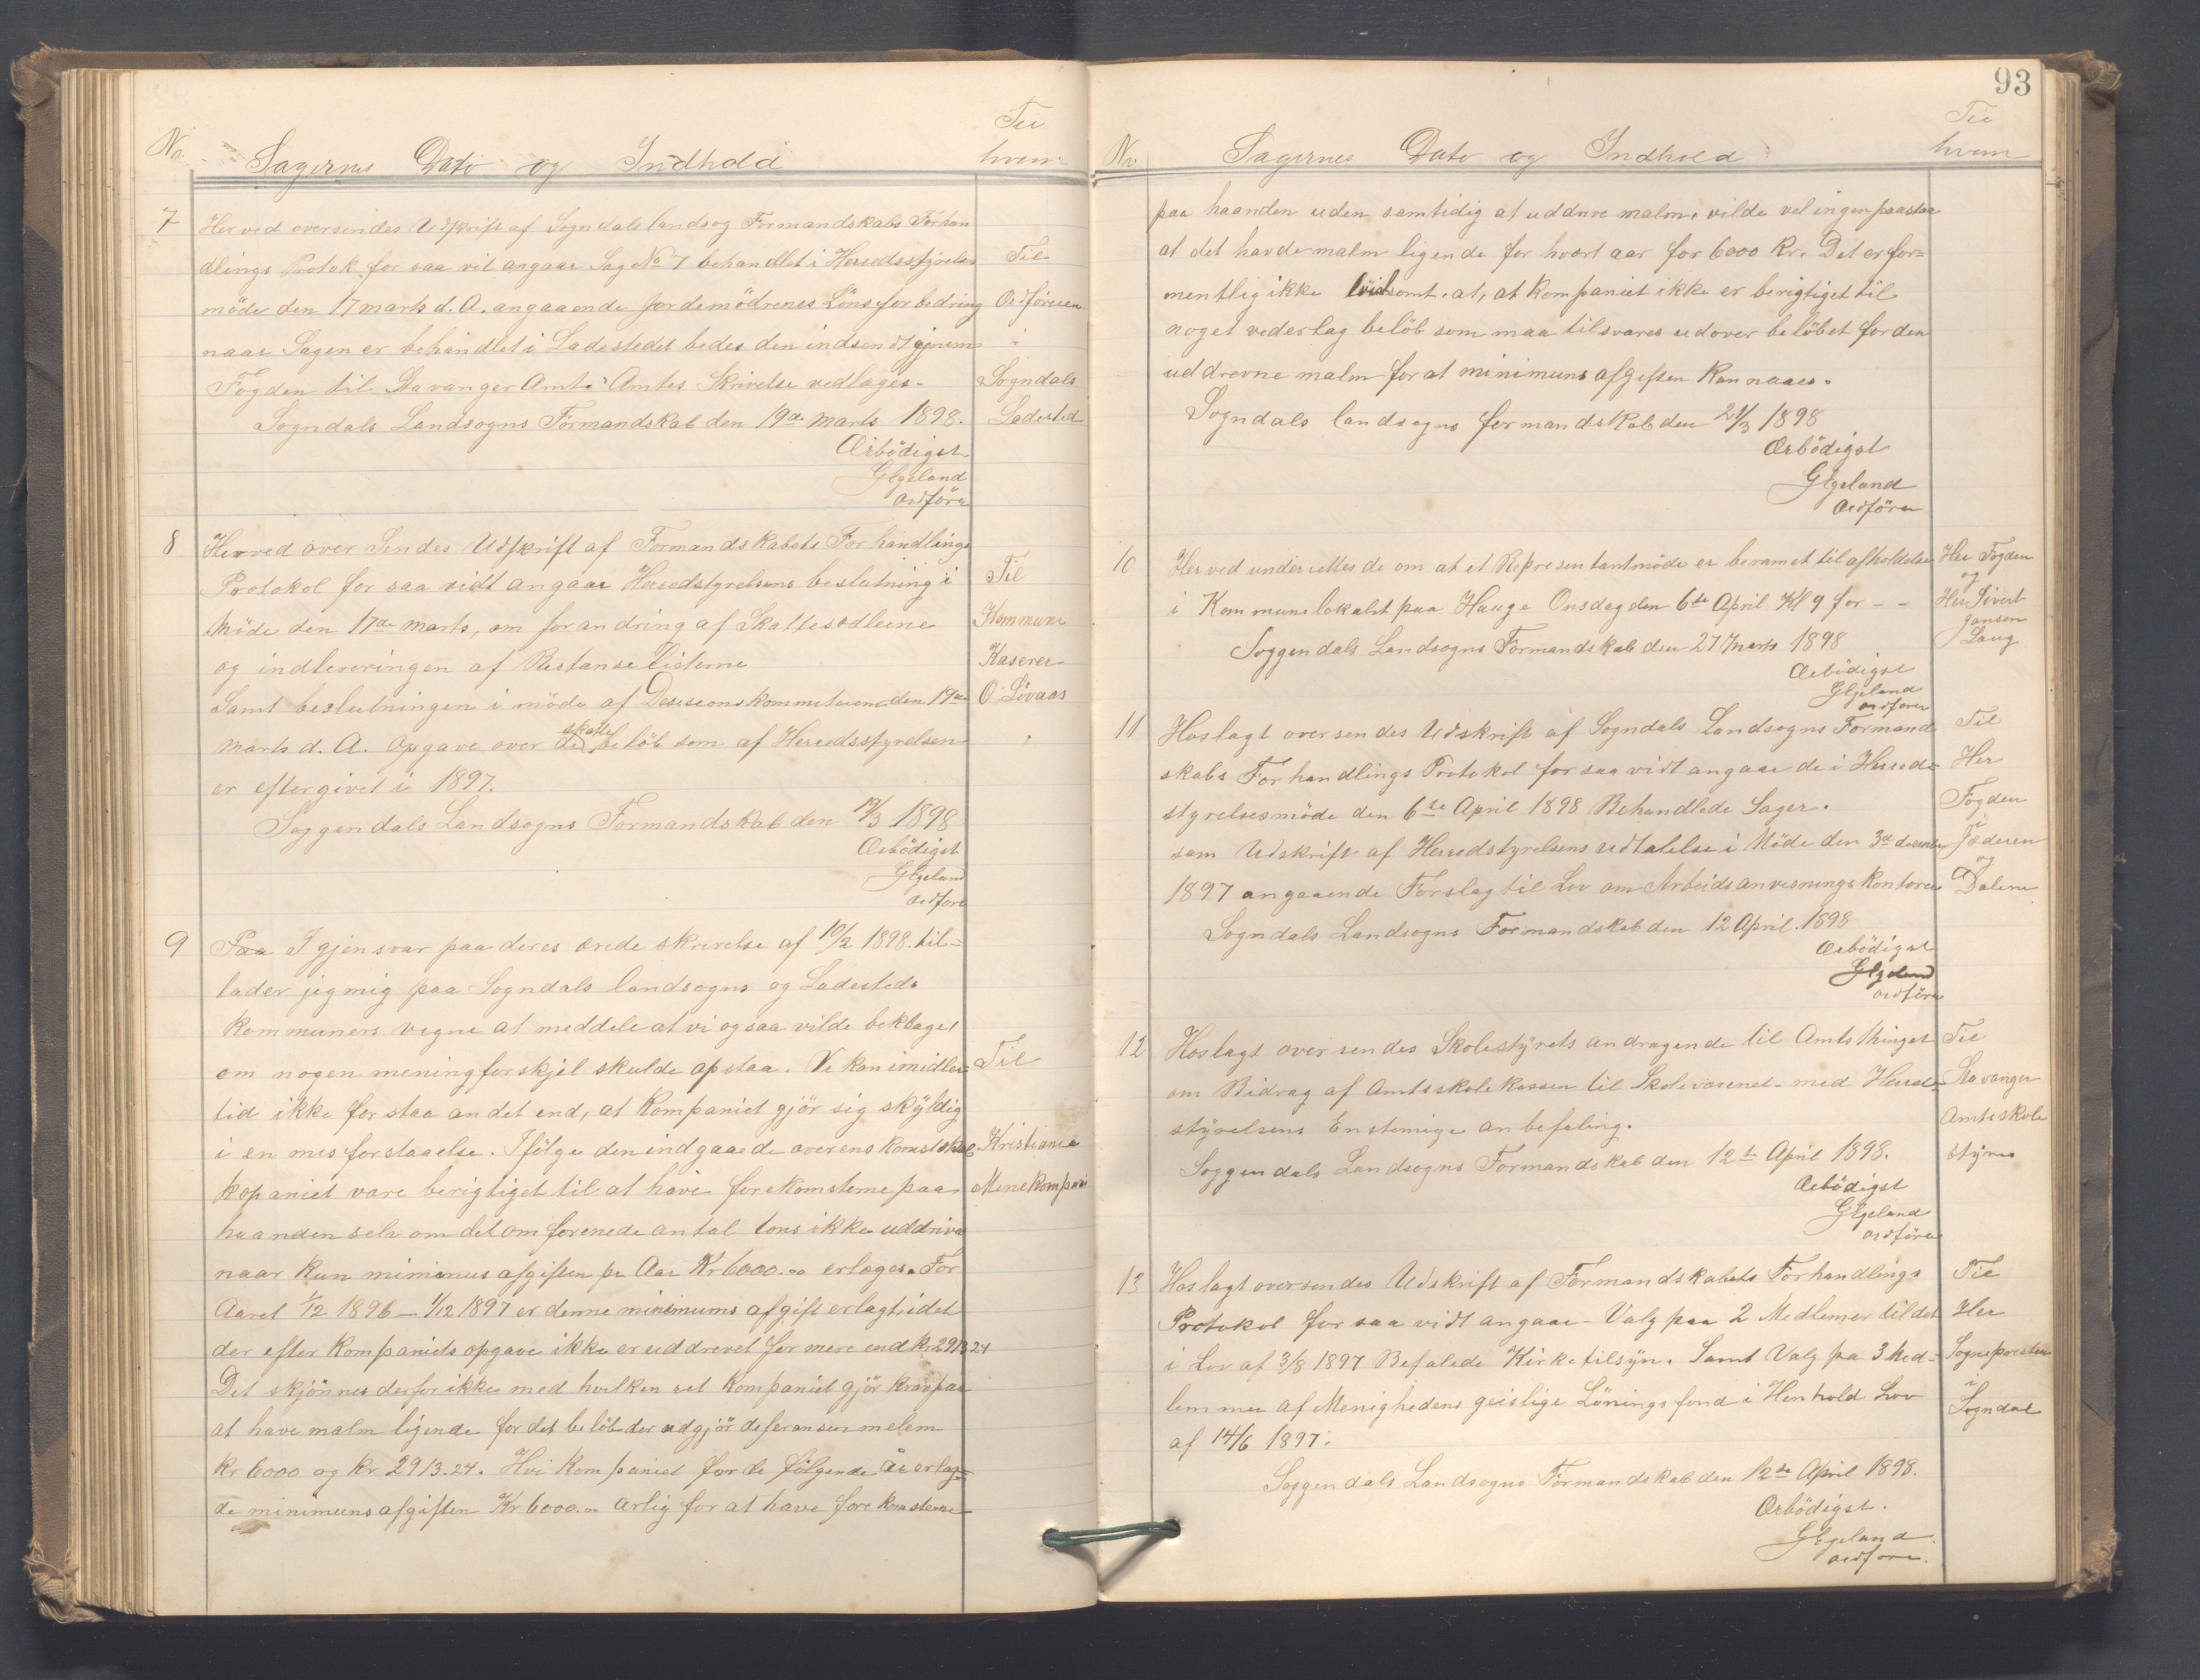 Til
No. Sagernes Dato og Indhold hvem
7 Herved oversendes Udskrift af Sogndals landsog Formandskabs Forhan
dlings Protok for saa vit angaar Sag No 7 behandlet i Herredsstyrelses Til
möde den 17 marts d. A. angaaende jordemödrenes Lönsforbedring Ordföreren
naar Sagen er behandlet i Ladestedet bedes den indsendt gjenem i
Fogden til Stavanger Amt. Amtes Skrivelse vedlæges. Sogndals
Sogndals Landsogns Formandskab den 19de Marts 1898. Ladested
Ærbödigst
G Egeland
ordförer
8 Herved over Sendes Udskrift af Formandskabets Forhandlings
Protokol for saa vidt angaar Herredstyrelsens beslutning i Til
Möde den 17de marts, om forandring af Skattesedlerne Kommune
og indleveringen af Restanselisterne Kaserer
Samt beslutningen i möde af Desisionskommiteione den 19de O Lövaas
marts d. A. Opgave over de skatte belöb som af Herredsstyrelsen
er eftergivet i 1897.
Soggendals Landsogns Formandskab den 19/3 1898
Ærbödigst
G Egeland
ordförer
9 Paa I gjensvar paa deres ærede skrivelse af 10/2 1898. til-
lader jeg mig paa Sogndals landsogns og Ladesteds
Kommuners vegne at meddele at vi ogsaa vilde beklage,
om nogen meningforskjel skulde opstaa. Vi kan imidler= Til
tid ikke forstaa andet end, at Kompaniet gjör sig skyldig
i en misforstaaelse. Ifölge den indgaaede overenskomst skal Kristiania
Kopaniet være berigtiget til at have forekomsterne paa Minekompani
haanden selv om det omforenede antal tons ikke uddrives
naar Kun minimus afgiften pr Aar Kr 6000.00 erlæges. For
Aaret 1/12 1896 — 1/12 1897 er denne minimums afgift erlagt idet
der efter Kompaniets opgave ikke er uddrevet for mere end kr 2913.24
Det skjönnes derfor ikke med hvilken ret Kompaniet gjör krav paa
at have malm ligende for det belöb der udgjör deferansen melem
Kr 6000 og Kr 2913.24. Hvis Kompaniet for de fölgende år erlag=
de minimumsafgiften Kr 6000.00 Arlig for at have forekomsterne
93
Til
Nr. Sagernes Dato og Indhold hvem
paa haanden uden samtidig at uddrive malm, vilde vel ingen paastaa
at det havde malm ligende for hvert aar for 6000 Kr. Det er for=
mentlig ikke tvilsomt, at, at Kompaniet ikke er berigtiget til
noget vederlag belöb som maa tilsvares udover belöbet for den
uddrevne malm for at minimums afgiften Kan naaes.
Sogndals landsogns formandskab den 21/3 1898
Ærbödigst
G Egeland
Ordförer
10 Herved underrettes de om at et Representantmöde er beramet til afholdelse Her Fogden
og
i Kommunelokalet paa Hauge Onsdag den 6te April Kl 9 for - - Her Sivert
Jansen
Soggendals Landsogns Formandskab den 27 Marts 1898 Laug
Ærbödigst
G Egeland
ordförer
11 Hoslagt oversendes Udskrift af Sogndals Landsogns Formand Til
skabs Forhandlings Protokol for saa vidt angaar de i Herreds= Her
styrelsesmöde den 6te April 1898 Behandlede Sager. Fogden
i
sam Udskrift af Herredstyrelsens udtalelse i Möde den 3de desember Jæderen
og
1897 angaaende Forslag til Lov om Arbeidsanvisnings kontorer Dalene
Sogndals Landsogns Formandskab den 12 April. 1898
Ærbödigst
G Egeland
ordförer
12 Hoslagt oversendes Skolestyrets andragende til Amtsthinget Til
om Bidrag af Amtsskolekassen til Skolevæsenet - med Herreds- Stavanger
styrelsens Enstemige anbefaling. Amtsskole
Soggendals Landsogns Formandskab den 12te April 1898. styre
Ærbödigst
G Egeland
ordförer
13 Hoslagt oversendes Udskrift af Formandskabets Forhandlings Til
Protokol for saa vidt angaar - Valg paa 2 Medlemer til det Her
i Lov af 3/8 1897 Befalede Kirketilsyn. Samt Valg pa 3 Med- Sognepresten
i
lemmer af Menighedens geislige Lönings fond i Henhold Lov Sogndal
af 14/6 1897.
Soggendals Landsogns Formandskab den 12te April 1898.
Ærbödigst.
G Egeland.
ordförer.